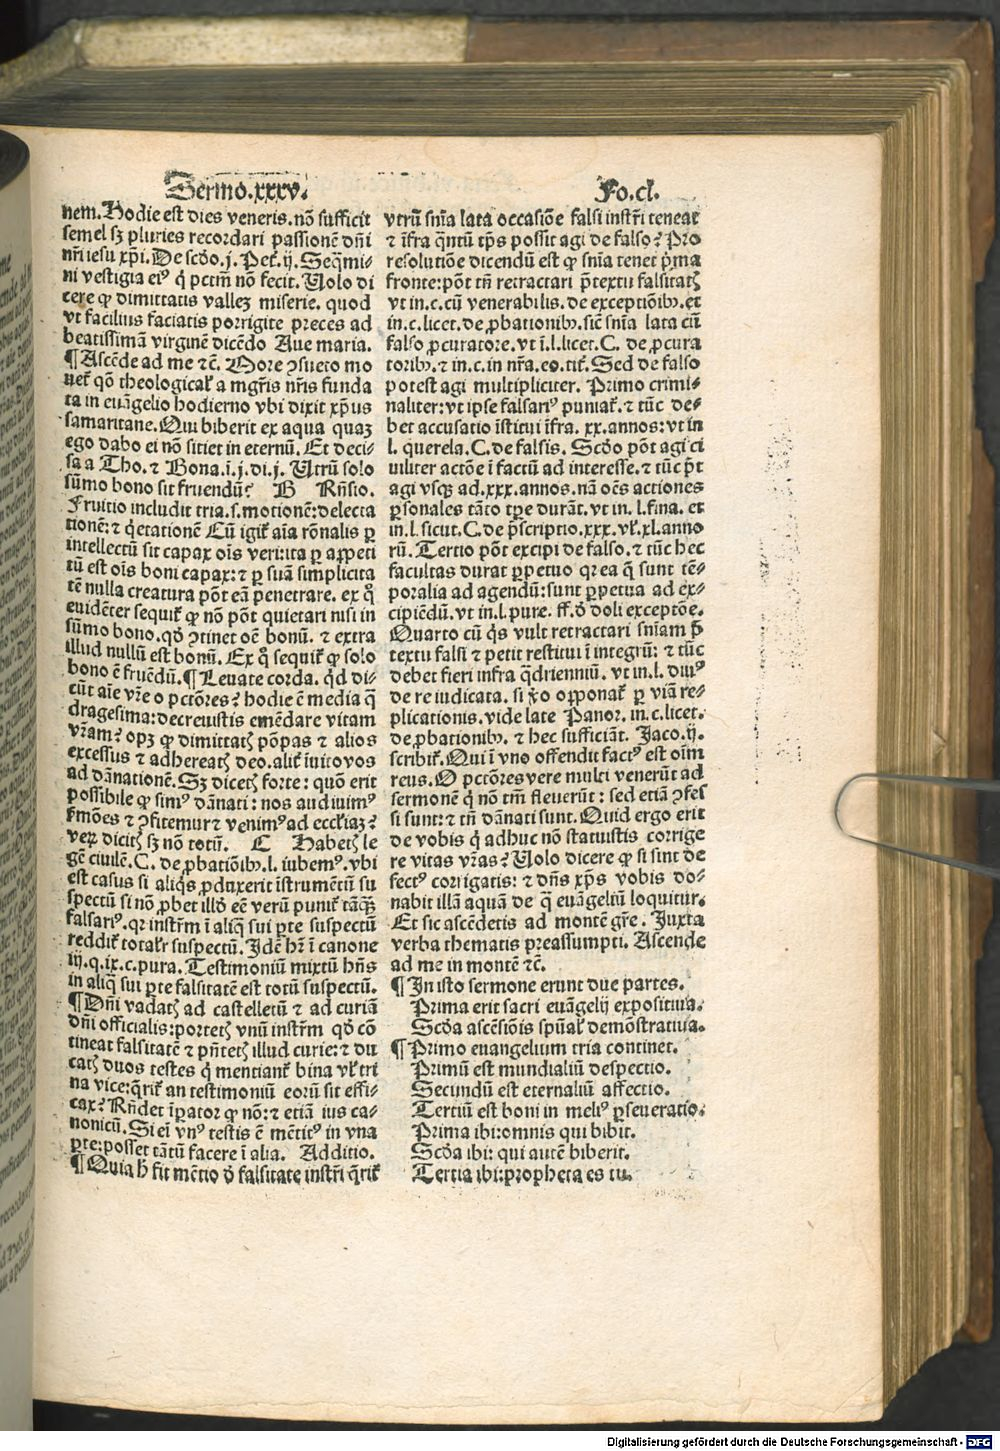 Sermo.xxxv.
Fo.cl.
nem. Hodie est dies veneris. nõ sufficit
semel sz pluries recordari passionẽ dñi
nr̃i iesu xp̃i. De scďo. j. Pet̃. ij. Seq̃mi-
ni vestigia ei⁹ q̇ pctm̃ nõ fecit. Uolo di
cere ꝙ dimittatis vallez miserie. quod
vt facilius faciatis porrigite preces ad
beatissimã virginẽ dicẽdo Aue maria.
¶ Ascẽde ad me ⁊c̃. More ꝯsueto mo
uet̃ qõ theological̃ a mgr̃is nr̃is funda
ta in euãgelio hodierno vbi dixit xp̃us
samaritane. Qui biberit ex aqua quaz
ego dabo ei nõ sitiet in eternũ. Et deci-
sa a Tho. ⁊ Bona. ĩ. j. di. j. Utrũ solo
sũmo bono sit fruendũ? B Rñsio.
Fruitio includit tria. s. motionẽ: delecta
tionẽ: ⁊ q̇etationẽ Cũ igit̃ aĩa rõnalis ꝑ
intellectũ sit capax oĩs veri: ita ꝑ appeti
tũ est oĩs boni capax: ⁊ ꝑ suã simplicita
tẽ nulla creatura põt eã penetrare. ex q̊
euidẽter sequit̃ ꝙ nõ põt quietari nisi in
sũmo bono. qď ꝯtinet oẽ bonũ. ⁊ extra
illud nullũ est bonũ. Ex q̊ sequit̃ ꝙ solo
bono ẽ fruẽdũ. ¶ Leuate corda. q̇d di-
cũt aĩe vr̃e o pctõres? hodie ẽ media q̃
dragesima: decreuistis emẽdare vitam
vr̃am? opz ꝙ dimittatꝭ põpas ⁊ alios
excessus ⁊ adhereatꝭ deo. alit̃ iuitovos
ad dãnationẽ. Sz dicetꝭ forte: quõ erit
possibile ꝙ sim⁹ dãnati: nos audiuim⁹
ẜmões ⁊ ꝯfitemur⁊ venim⁹ ad eccl̃iaz?
veꝝ dicitꝭ sz nõ totũ. C Habetꝭ le
gẽ ciuilẽ. C. de ꝓbatiõibꝰ. l. iubem⁹. vbi
est casus si aliq̇s ꝓduxerit ĩstrumẽtũ su
spectũ si nõ ꝓbet illď eẽ verũ punit̃ tãq̃ꝫ
falsari⁹. qr instr̃m ĩ aliq̃ sui ꝑte suspectũ
reddit̃ total̃r suspectũ. Idẽ hr̃ ĩ canone
iij. q. ix. c. pura. Testimoniũ mixtũ hñs
in aliq̃ sui ꝑte falsitatẽ est totũ suspectũ.
¶ Dñi vadatꝭ ad castelletũ ⁊ ad curiã
dñi officialis: portetꝭ vnũ instr̃m qď cõ
tineat falsitatẽ ⁊ pñtetꝭ illud curie: ⁊ du
catꝭ duos testes q̇ mentiant̃ bina vl̃ tri
na vice: q̃rit̃ an testimoniũ eorũ sit effi-
cax? Rñdet ĩpator ꝙ nõ: ⁊ etiã ius ca-
nonicũ. Si eĩ vn⁹ testis ẽ mẽtit⁹ in vna
ꝑte: posset tãtũ facere ĩ alia. Additio.
¶ Quia ħ fit mẽtio ď falsitate instr̃i q̃rit̃
vtrũ snĩa lata occasiõe falsi instr̃i teneat
⁊ ĩfra q̃ntũ tp̃s possit agi de falso? Pro
resolutiõe dicendũ est ꝙ snĩa tenet p̃ma
fronte: põt tñ retractari p̃textu falsitatꝭ
vt in. c. cũ venerabilis. de exceptiõibꝰ. et
in. c. licet. de ꝓbationibꝰ. sic̃ snĩa lata cũ
falso ꝓcuratore. vt ĩ. l. licet. C. de ꝓcura
toribꝰ. ⁊ in. c. in nr̃a. eo. tit̃. Sed de falso
potest agi multipliciter. Primo crimi-
naliter: vt ipse falsari⁹ puniat̃. ⁊ tũc de-
bet accusatio ĩstitui ĩfra. xx. annos: vt in
l. querela. C. de falsis. Scďo põt agi ci
uiliter actõe ĩ factũ ad interesse. ⁊ tũc p̃t
agi vsqꝫ ad. xxx. annos. nã oẽs actiones
ꝑsonales tãto tp̃e durãt. vt in. l. fina. et
in. l. sicut. C. de p̃scriptio. xxx. vl̃. xl. anno
rũ. Tertio põt excipi de falso. ⁊ tũc hec
facultas durat ꝑpetuo qr ea q̃ sunt tẽ-
poralia ad agendũ: sunt ꝑpetua ad ex-
cipiẽdũ. vt in. l. pure. ff. ď doli exceptõe.
Quarto cũ q̇s vult retractari snĩam p̃
textu falsi ⁊ petit restitui ĩ integrũ: ⁊ tũc
debet fieri infra q̃drienniũ. vt in. l. diui⁹
de re iudicata. si ṽo opponat̃ ꝑ viã re-
plicationis. vide late Panor. in. c. licet.
de ꝓbationibꝰ. ⁊ hec sufficiãt. Jaco. ij.
scribit̃. Qui ĩ vno offendit fact⁹ est oĩm
reus. O pctõres vere multi venerũt ad
sermonẽ q̇ nõ tm̃ fleuerũt: sed etiã ꝯfes
si sunt: ⁊ tñ dãnati sunt. Quid ergo erit
de vobis q̇ adhuc nõ statuistis corrige
re vitas vr̃as? Uolo dicere ꝙ si sint de
fect⁹ corrigatis: ⁊ dñs xp̃s vobis do-
nabit illã aquã de q̃ euãgeliũ loquitur.
Et sic ascẽdetis ad montẽ gr̃e. Juxta
verba thematis preassumpti. Ascende
ad me in montẽ ⁊c̃.
¶ In isto sermone erunt due partes.
Prima erit sacri euãgelij expositiua.
Scďa ascẽsiõis spũal̃ demõstratiua.
¶ Primo euangelium tria continet.
Primũ est mundialiũ despectio.
Secundũ est eternaliũ affectio.
Tertiũ est boni in meli⁹ ꝑseueratio.
Prima ibi: omnis qui bibit.
Scďa ibi: qui autẽ biberit.
Tertia ibi: propheta es tu.
Digitalisierung gefördert durch die Deutsche Forschungsgemeinschaft - DFG